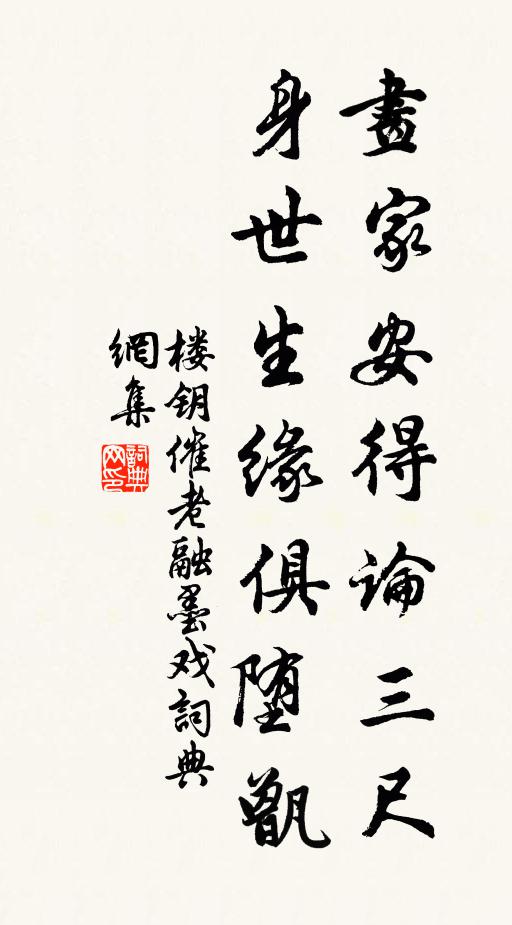 畫家安得論三尺
身世生緣俱堕甑
楼钥催老融墨戏詞典
網集
詞典
网印